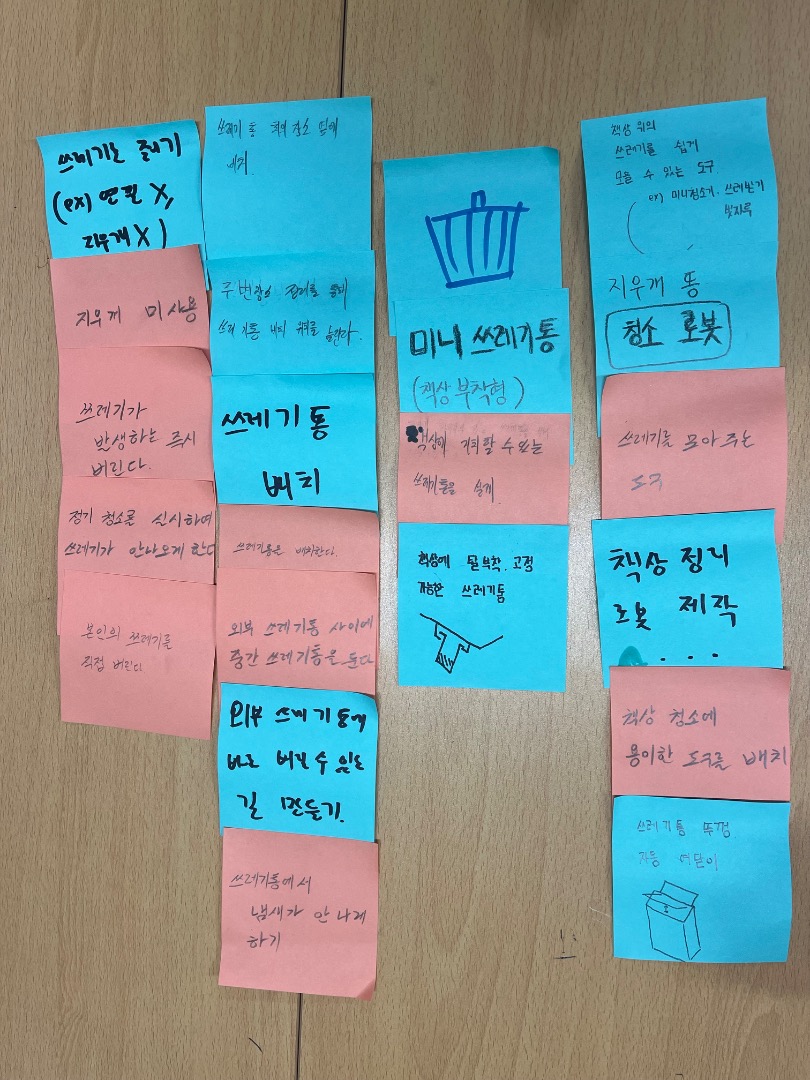 쓰레기는 줄기
(ex) 연필 X,
지우개 X)
지우개 미사용
쓰레기가
발생하는 즉시
버린다.
정기 청소를 실시하여
쓰레기가 안나오게 한다
본인의 쓰레기를
직접 버린다
쓰레기통 최적 장소
배치.
주변
쓰레기통 배치
쓰레기통
배치
쓰레기통은 배치한다.
외부 쓰레기통 사이에
중간 쓰레기통을 둔다
외부 쓰레기통에
바로 버릴 수 있는
길 만들기.
쓰레기통에서
냄새가 안 나게
하기
미니 쓰레기통
(책상 부착형)
책상에 거치할 수 있는
쓰레기통을 설계
책상에 탈부착, 고정
가능한 쓰레기통
책상 위의
쓰레기를 쉽게
모을 수 있는 도구.
ex) 미니청소기, 쓰레받기
빗자루
지우개 똥
청소 로봇
쓰레기를 모아 주는
도구
책상 정리
로봇 제작
...
책상 청소에
용이한 도구를 배치
쓰레기통 뚜껑
자동 여닫이